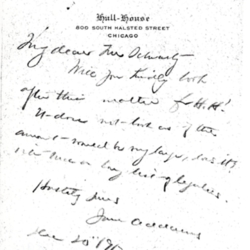 Hull-House
800 SOUTH HALSTED STREET
CHICAGO
My dear Mr
Will you kindly look
after this matter for H.H.
It does not look as if the
amount would be very large, but it's
nice to
Hastily yours
Jane Addams
Dec 20"